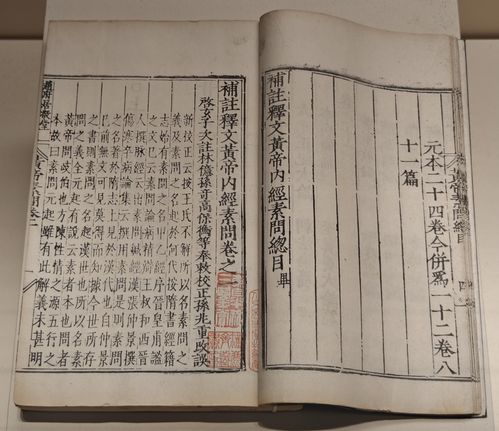 元本二十四卷今併爲一十二卷八
十一篇
補註釋文黃帝內經素問總目畢
補註釋文黃帝內經素問卷之一
啓玄子次註林億孫奇高保衡等奉敕校正孫兆重改誤
新校正云按王氏不解所以名素問之
義及素問之名起於何代按隋書經籍
志始有素問之名甲乙經序晉皇甫謐
之文已云素問論病精辨王叔和西晉
人撰脉經云出素問鍼經漢張仲景撰
傷寒卒病論集云撰用素問是則素問
之名著於隋志上見於漢代也自仲景
已前無文可見莫得而知據今世所存
之書則素問之名起漢世也所以名素
問之義全元起有說云素者本也問者
黃帝問岐伯也方陳性情之源五行之
本故曰素問元起雖有此解義未甚明
趙府居敬堂